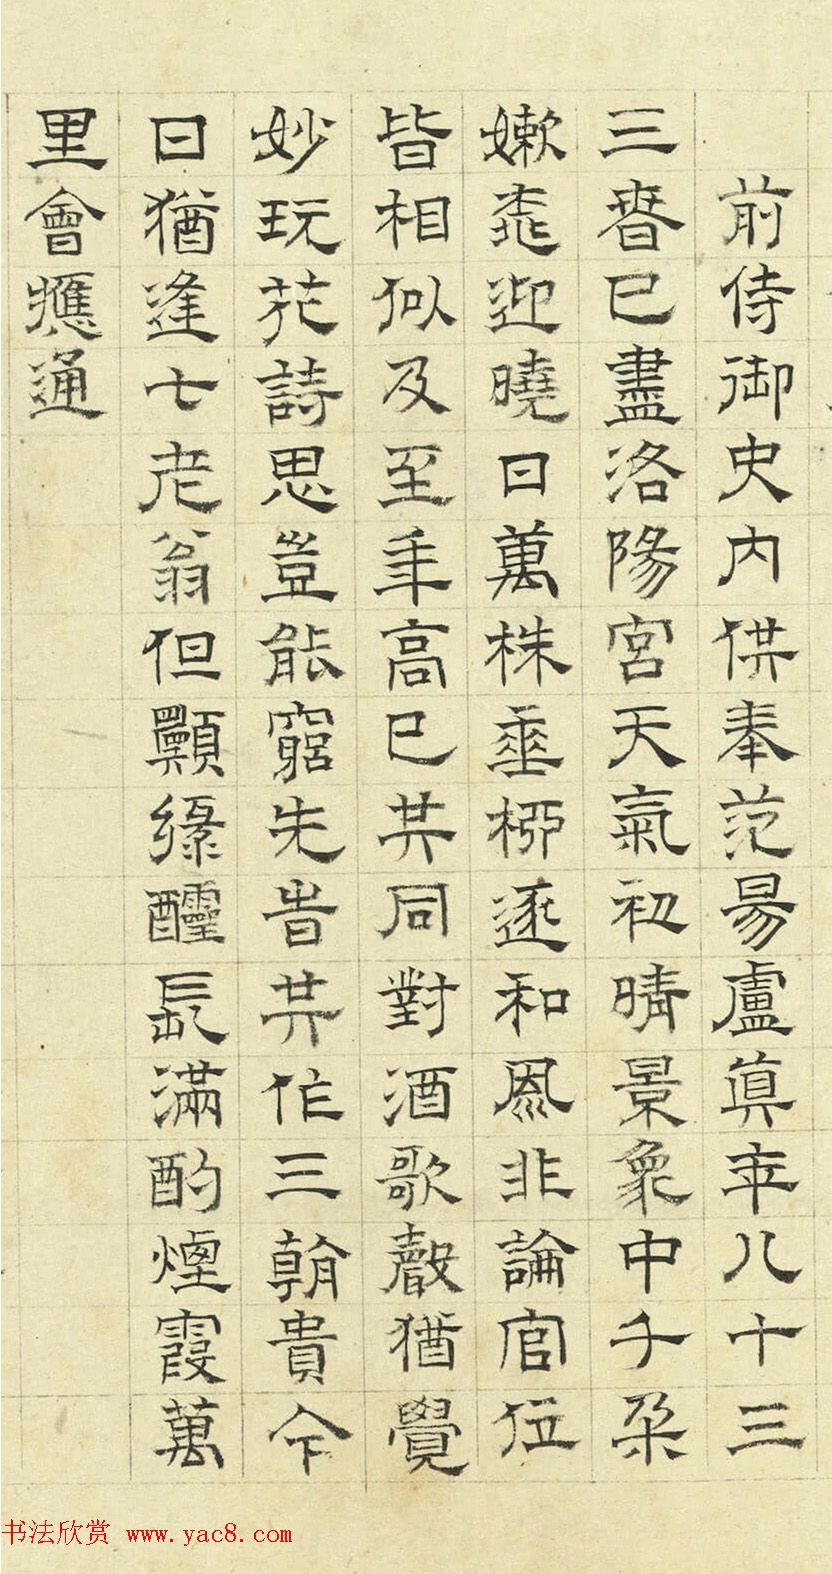 前侍御史內供奉范昜盧真年八十三
三春已盡洛陽宮天氣初晴景象中千朵
嫩桃迎曉日萬株垂柳逐和風非論官位
皆相似及至年高已共同對酒歌聲猶覺
妙玩花詩思豈能窮先時共作三朝貴今
日猶逢七老翁但願綠醽長滿酌煙霞萬
里會應通
书法欣赏 www.yac8.com